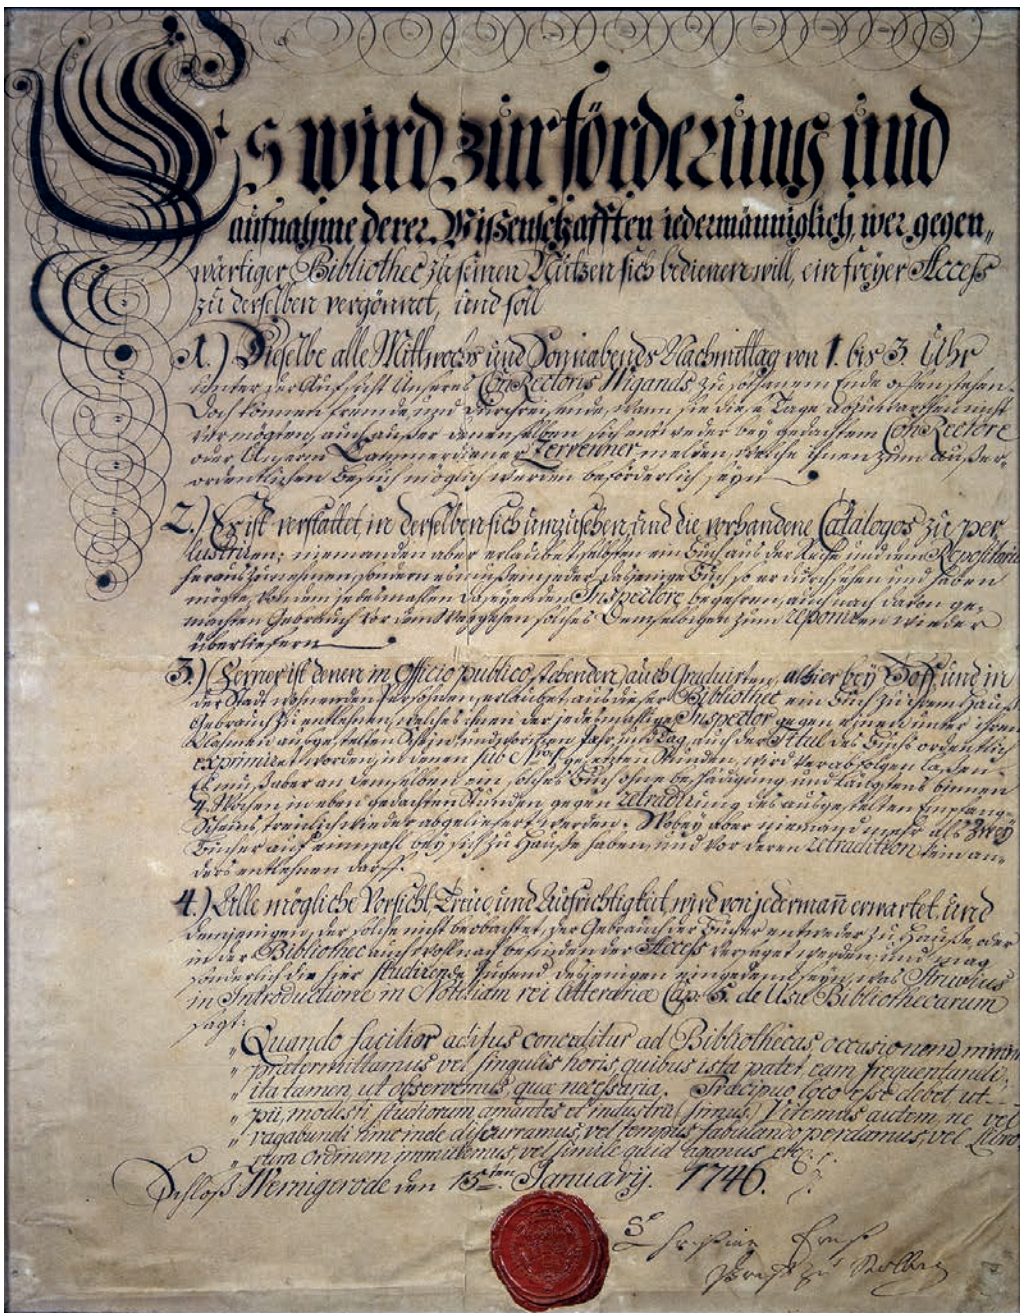 Es wird zur förderung und
aufnahme derer Wißenschafften jedermänniglich, wer gegen„
wärtiger Bibliothec zu seinen Nutzen sich bedienen will, ein freyer Access
zu derselben vergönnet, und soll
1.) Dieselbe alle Mittwochs und Sonnabends Nachmittag von 1. bis 3. Uhr
unter der Aufsicht Unseres ConRectoris Wigands zu sothanem Ende offen stehen.
Doch können fremde, und durchreisende, wann sie diese Tage abzuwarthen nicht
vermögten, auch außer denenselben sich entweder bey gedachtem Con Rectore
oder Unserm Cammerdiener Zervenner melden, welche ihnen zum außer-
ordentlichen Besuch möglich werden beförderlich seyn
2.) Es ist verstattet, in derselben sich umzusehen, und die vorhandene Catalogos zu per
lustriren; niemanden aber erlaubet, selbsten ein Buch aus der Reihe und dem Repositorio
herauszunehmen, sondern es muß ein jeder dasjenige Buch so er durchsehen und haben
mögte, von dem jedesmahlen daseyenden Inspectore begehren, auch nach davon ge-
machten Gebrauch vor dem Weggehen solches demselbigen zum reponiren wieder
überliefern
3.) Ferner ist denen in Officio publico stehenden, auch Graduirten, alhier bey Hoff und in
der Stadt wohnenden Persohnen erlaubet, aus dieser Bibliothec ein Buch zu ihrem Hauß
Gebrauch zu entlehnen, welches ihnen der jedesmahlige Inspector gegen einen unter ihrem
Nahmen ausgestelten Schein, und worinnen Jahr und Tag, auch der Titul des Buchs ordentlich
exprimiret worden, in denen sub No 1 gesetzten Stunden, wird verabfolgen laßen.
Es muß aber an demselben ein solches Buch ohne beschädigung und längstens binnen
4. Wochen in eben gedachten Stunden gegen retradirung des ausgestelten Empfang-
Scheins treulich wieder abgeliefert werden. Wobey aber niemand mehr als zwey
Bücher auf einmahl bey sich zu Hauße haben, und vor deren retradition kein an-
ders entlehnen darff.
4.) Alle mögliche Vorsicht, Treue und Aufrichtigkeit, wird von jedermañ erwartet, und
demjenigen, der solche nicht beobachtet, der Gebrauch der Bücher entweder zu Hauße, oder
in der Bibliothec auch wohl nach befinden der Access versaget werden; und mag
sonderlich die hier studirende Jugend desjenigen eingedenck seyn, was Struvius
in Introductione in Notitiam rei litterariæ Cap. 5. de Usu Bibliothecarum
sagt:
„ Quando facilior aditus conceditur ad Bibliothecas, occasionem
„ prætermittamus vel singulis horis, quibus ista patet eam frequentandi,
„ ita tamen, ut observemus, quæ necessaria. Præcipuo loco esse debet ut
„ pii, modesti, studiorum amantes et industrii simus. Vitemus autem, ne vel
„ vagabundi hinc inde discurramus, vel tempus fabulando perdamus, vel Libro
„ rum ordinem immutemus, vel simile quid agamus etc.
Schloß Wernigerode den 15ten January. 1746.
Christian Ernst
Graf zu Stolberg